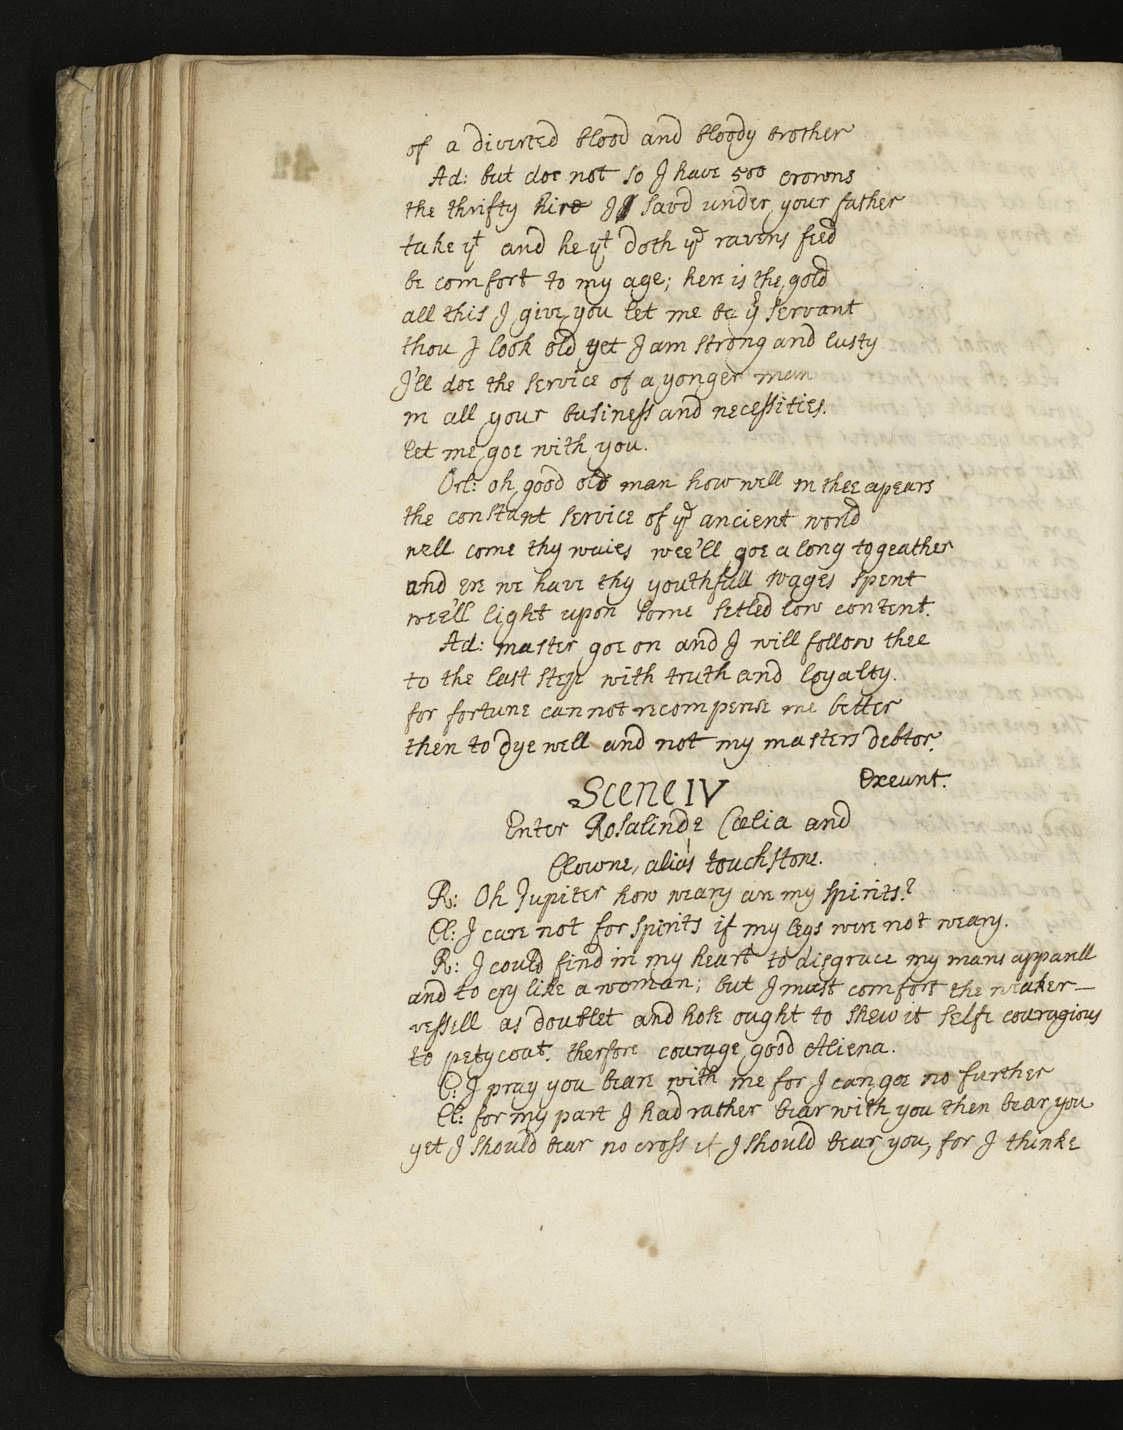 of a diverted blood and bloody brother
Ad: but doe not so I have 500 crowns
the thrifty hire I savd under your father
take yt and he yt doth ye ravens feed
be comfort to my age; here is the gold
all this I give you let me be yr servant
thou I look old yet I am strong and lusty
I'll doe the service of a yonger man
in all your business and necessities.
let me goe with you.
Orl: oh good old man how well in thee apears
the constant service of ye ancient world
well come thy waies wee'll goe a long togeather
and ere we have thy youthfull wages spent
wee'll light upon some setled low content.
Ad: master goe on and I will follow thee
to the last stepe with truth and loyalty.
for fortune cannot recompense me better
then to dye well and not my masters debtor.
Exeunt.
Scene IV
Enter Rosalinde Cœlia and
Clowne, alias touchstone.
R: Oh Jupiter how weary are my spirits?
Cl: I care not for spirits if my legs were not weary.
R: I could find in my heart to disgrace my mans apparell
and to cry like a woman; but I must comfort the weaker
vessell as doublet and hose ought to shew it selfe couragious
to petycoat. therfore courage good Aliena.
C: I pray you beare with me for I can goe no further
Cl: for my part I had rather bear with you then bear you
yet I should bear no cross if I should bear you, for I thinke